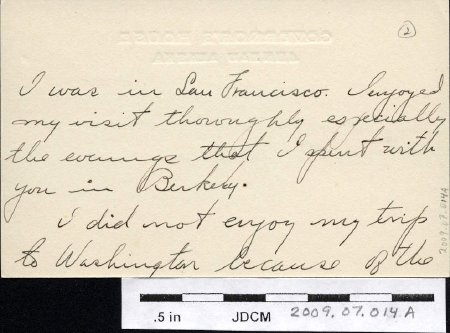 2
I was in San Francisco. I enjoyed
my visit thoroughly especially
the evenings that I spent with
you in Berkely.
I did not enjoy my trip
to Washington because of the
2009.07.014A
.5 in JDCM 2009.07.014A